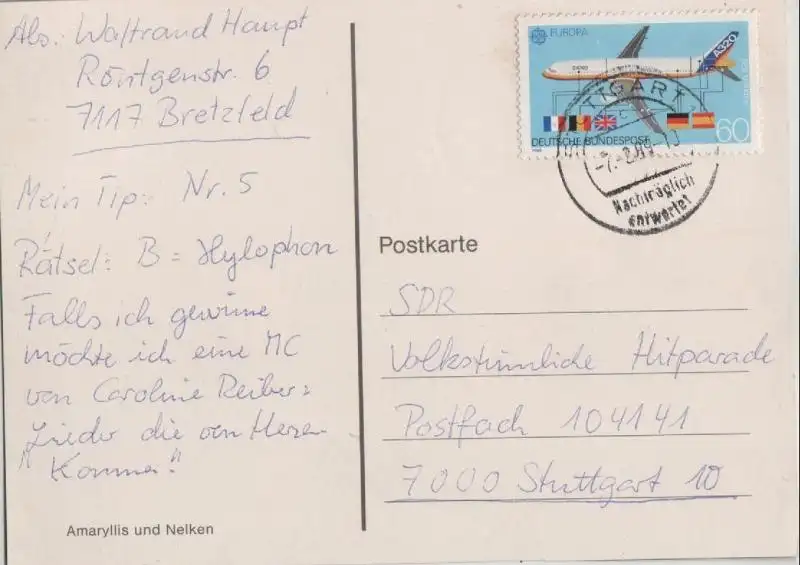 Abs.: Waltraud Haupt
Röntgenstr. 6
7117 Bretzfeld
Mein Tip: Nr. 5
Rätsel: B = Xylophon
Falls ich gewinne
möchte ich eine MC
von Caroline Reiber:
"Lieder die von Herzen
Kommen"
Amaryllis und Nelken
EUROPA
A320
60
DEUTSCHE BUNDESPOST
Nachträglich
entwertet
Postkarte
SDR
Volkstümliche Hitparade
Postfach 104141
7000 Stuttgart 10